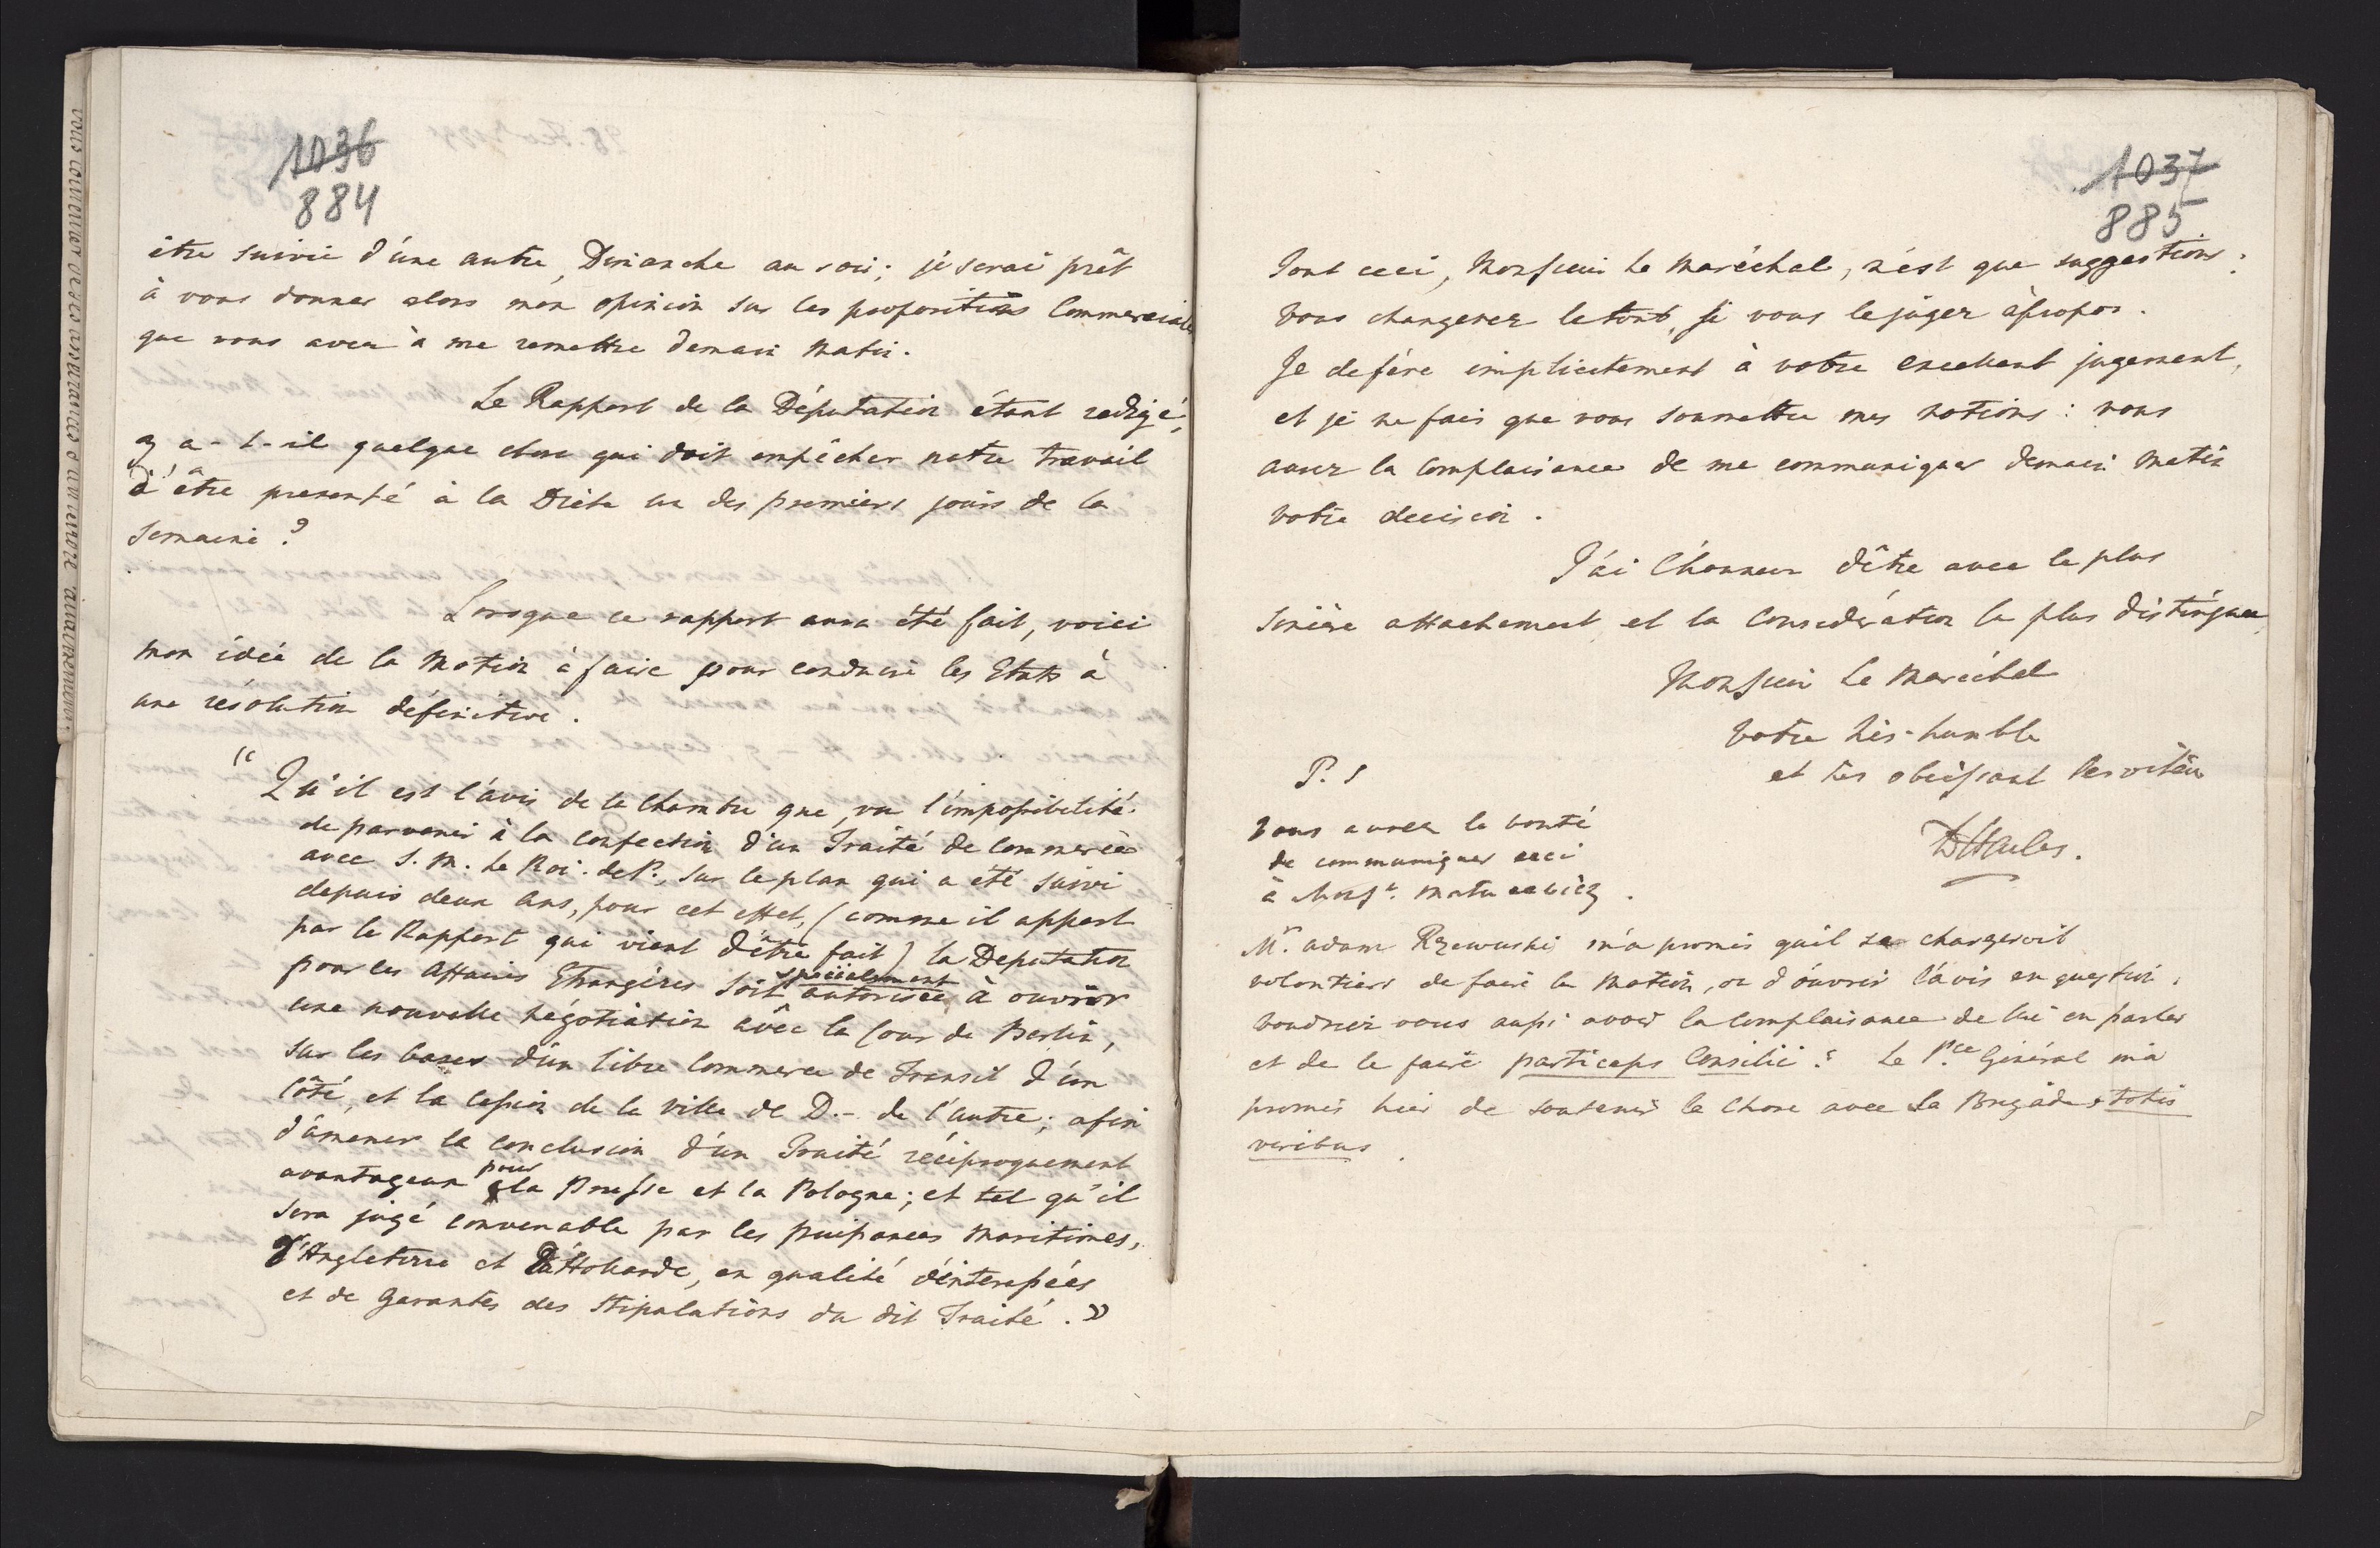 1036
884
être suivie d'une autre, Dimanche au soir; je serai prêt
à vous donner alors mon opinion sur les propositions Commerciales
que vous avez à me remettre demain matin.
Le Rapport de la Députation étant redigé,
y a-t-il quelque chose qui doit empêcher notre travail
d'être presenté à la Diète un des premiers jours de la
Semaine?
Lorsque ce rapport aura été fait, voici
mon idée de la Motion à faire pour conduire les Etats à
une résolution définitive.
"Qu'il est l'avis de la Chambre que, vu l'impossibilité
de parvenir à la confection d'un Traité de Commerce
avec S. M. le Roi de P., sur le plan qui a été suivi
depuis deux ans, pour cet effet, (comme il appert
par le Rapport qui vient d'être fait) la Deputation
pour les Affaires Etrangères soit spécialement autorisée à ouvrir
une nouvelle négotiation avec la Cour de Berlin,
sur les bases d'un libre Commerce de Transit d'un
côté, et la Cession de la Ville de D.- de l'autre; afin
d'amener la conclusion d'un Traité réciproquement
avantageux pour la Prusse et la Pologne; et tel qu'il
sera jugé convenable par les puissances Maritimes,
d'Angleterre et d'Hollande, en qualité d'interessées
et de Garantes des Stipulations du dit Traité."
1037
885
Tout ceci, Monsieur le Maréchal, n'est que suggestions:
Vous changerez le tout, si vous le jugez àpropos.
Je defére implicitement à votre excellent jugement,
et je ne fais que vous soumettre mes notions: vous
aurez la Complaisance de me communiquer demain matin
votre decision.
J'ai l'honneur d'être avec le plus
sincère attachement et la Consideration la plus distinguée
Monsieur le Maréchal
Votre très-humble
et très obeissant Serviteur
DHailes.
P. S
Vous aurez la bonté
de communiquer ceci
à Monsr. Matuscewicz.
Mr. Adam Rzewuski m'a promis quil se chargeroit
volontiers de faire la Motion, ou d'ouvrir l'avis en question,
voudriez vous aussi avoir la Complaisance de lui en parler
et de le faire particeps Consilii? Le Pce. Général m'a
promis hier de soutenir la Chose avec sa Brigade, totis
viribus.